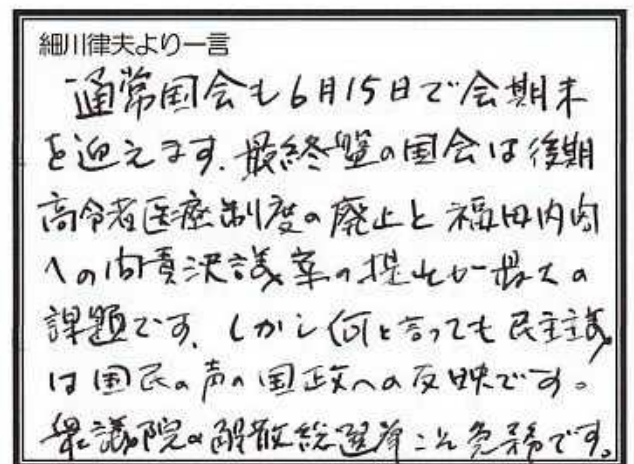 細川律夫より一言
通常国会も6月15日で会期末
を迎えます。最終盤の国会は後期
高令者医療制度の廃止と福田内閣
への問責決議案の提出が最大の
課題です。しかし何と言っても民主主義
は国民の声の国政への反映です。
衆議院の解散総選挙こそ急務です。